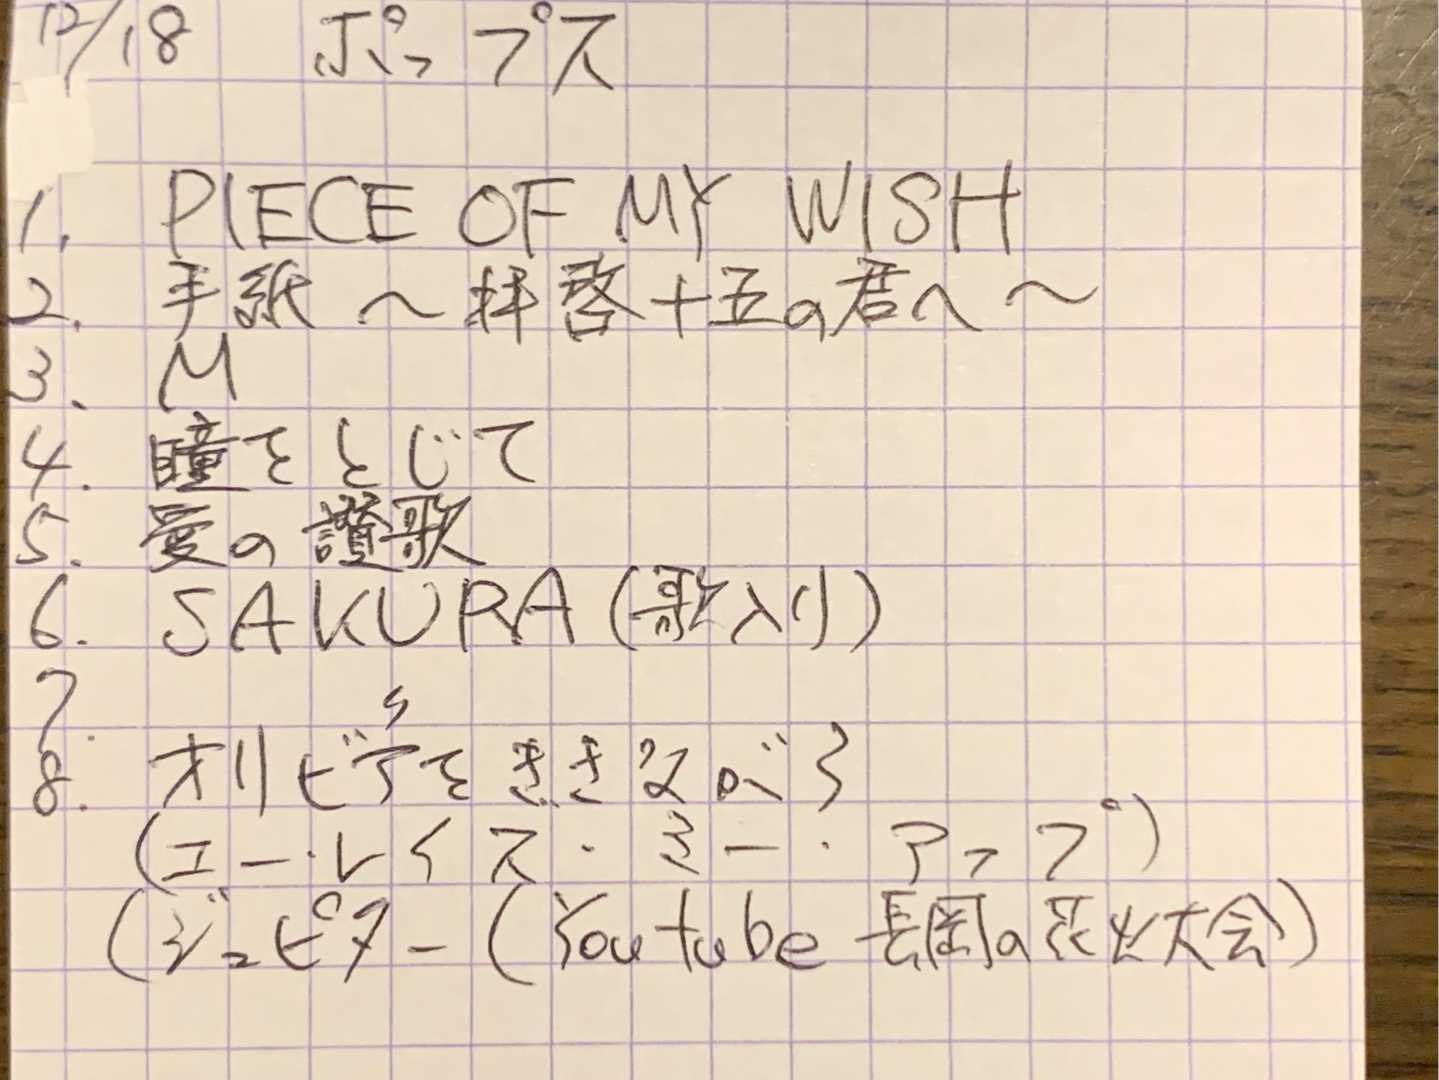 12/18 ポップス
1. PIECE OF MY WISH
2. 手紙〜拝啓十五の君へ〜
3. M
4. 瞳をとじて
5. 愛の讃歌
6. SAKURA(歌入り)
7.
8. オリビアをききながら
(ユー・レイズ・ミー・アップ)
(ジュピター(Youtube 長岡の花火大会)